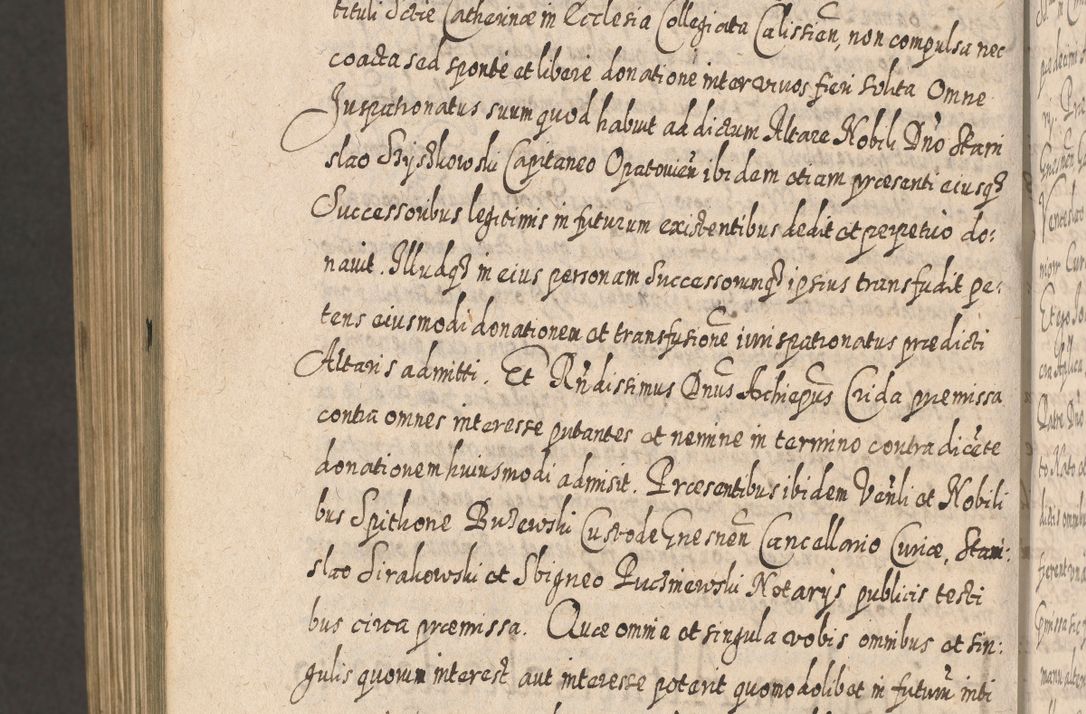 tituli S[anc]tae Catherinae in Ecclesia Collegiata Calissien̄, non compulsa nec
coacta sed sponte et libere donatione inter vivos fieri solita Omne
Juspatronatus suum quod habuit ad dictum Altare Nobili Dn̄o Stani
slao Szyszkowski Capitaneo Opatovien̄ ibidem etiam praesenti eiusq3
Successoribus legitimis in futurum existentibus dedit et perpetuo do:
navit. Illudq3 in eius personam Successorumq3 ipsius transfudit pe:
tens eiusmodi donationem et transfusionē iurispatronatus praedicti
Altaris admitti. Et Rn̄dissimus Dn̄us Achiepūs Crida premissa
contra omnes interesse putantes et nemine in termino contradicēte
donationem huiusmodi admisit. Praesentibus ibidem Ven̄li et Nobili
bus Spithone Buzewski Custode Gnesnen̄ Cancellario Curiae, Stani:
slao Sirakowski et Sbigneo Puczniewski Notarijs publicis testi
bus circa praemissa. Quae omnia et singula vobis omnibus et sin:
gulis quorum interest aut interesse poterit quomodolibet in futurū inti